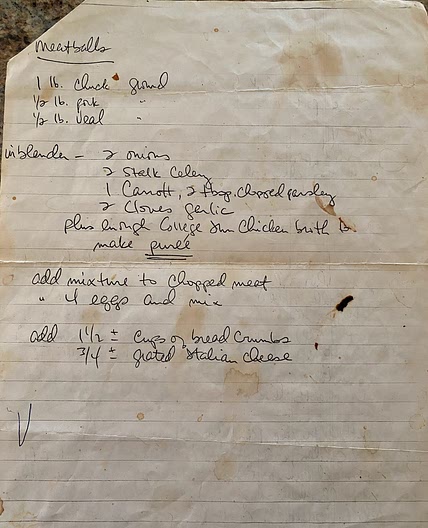 Meatballs
1 lb. chuck ground
1/2 lb. pork "
1/2 lb. veal "
in blender - 2 onions
2 stalk celery
1 Carrott, 2 tbsp. chopped parsley
2 Cloves garlic
plus enough College Inn Chicken broth to
make puree
add mixture to chopped meat
" 4 eggs and mix
add 1 1/2 ± cups of bread crumbs
3/4 ± grated Italian cheese